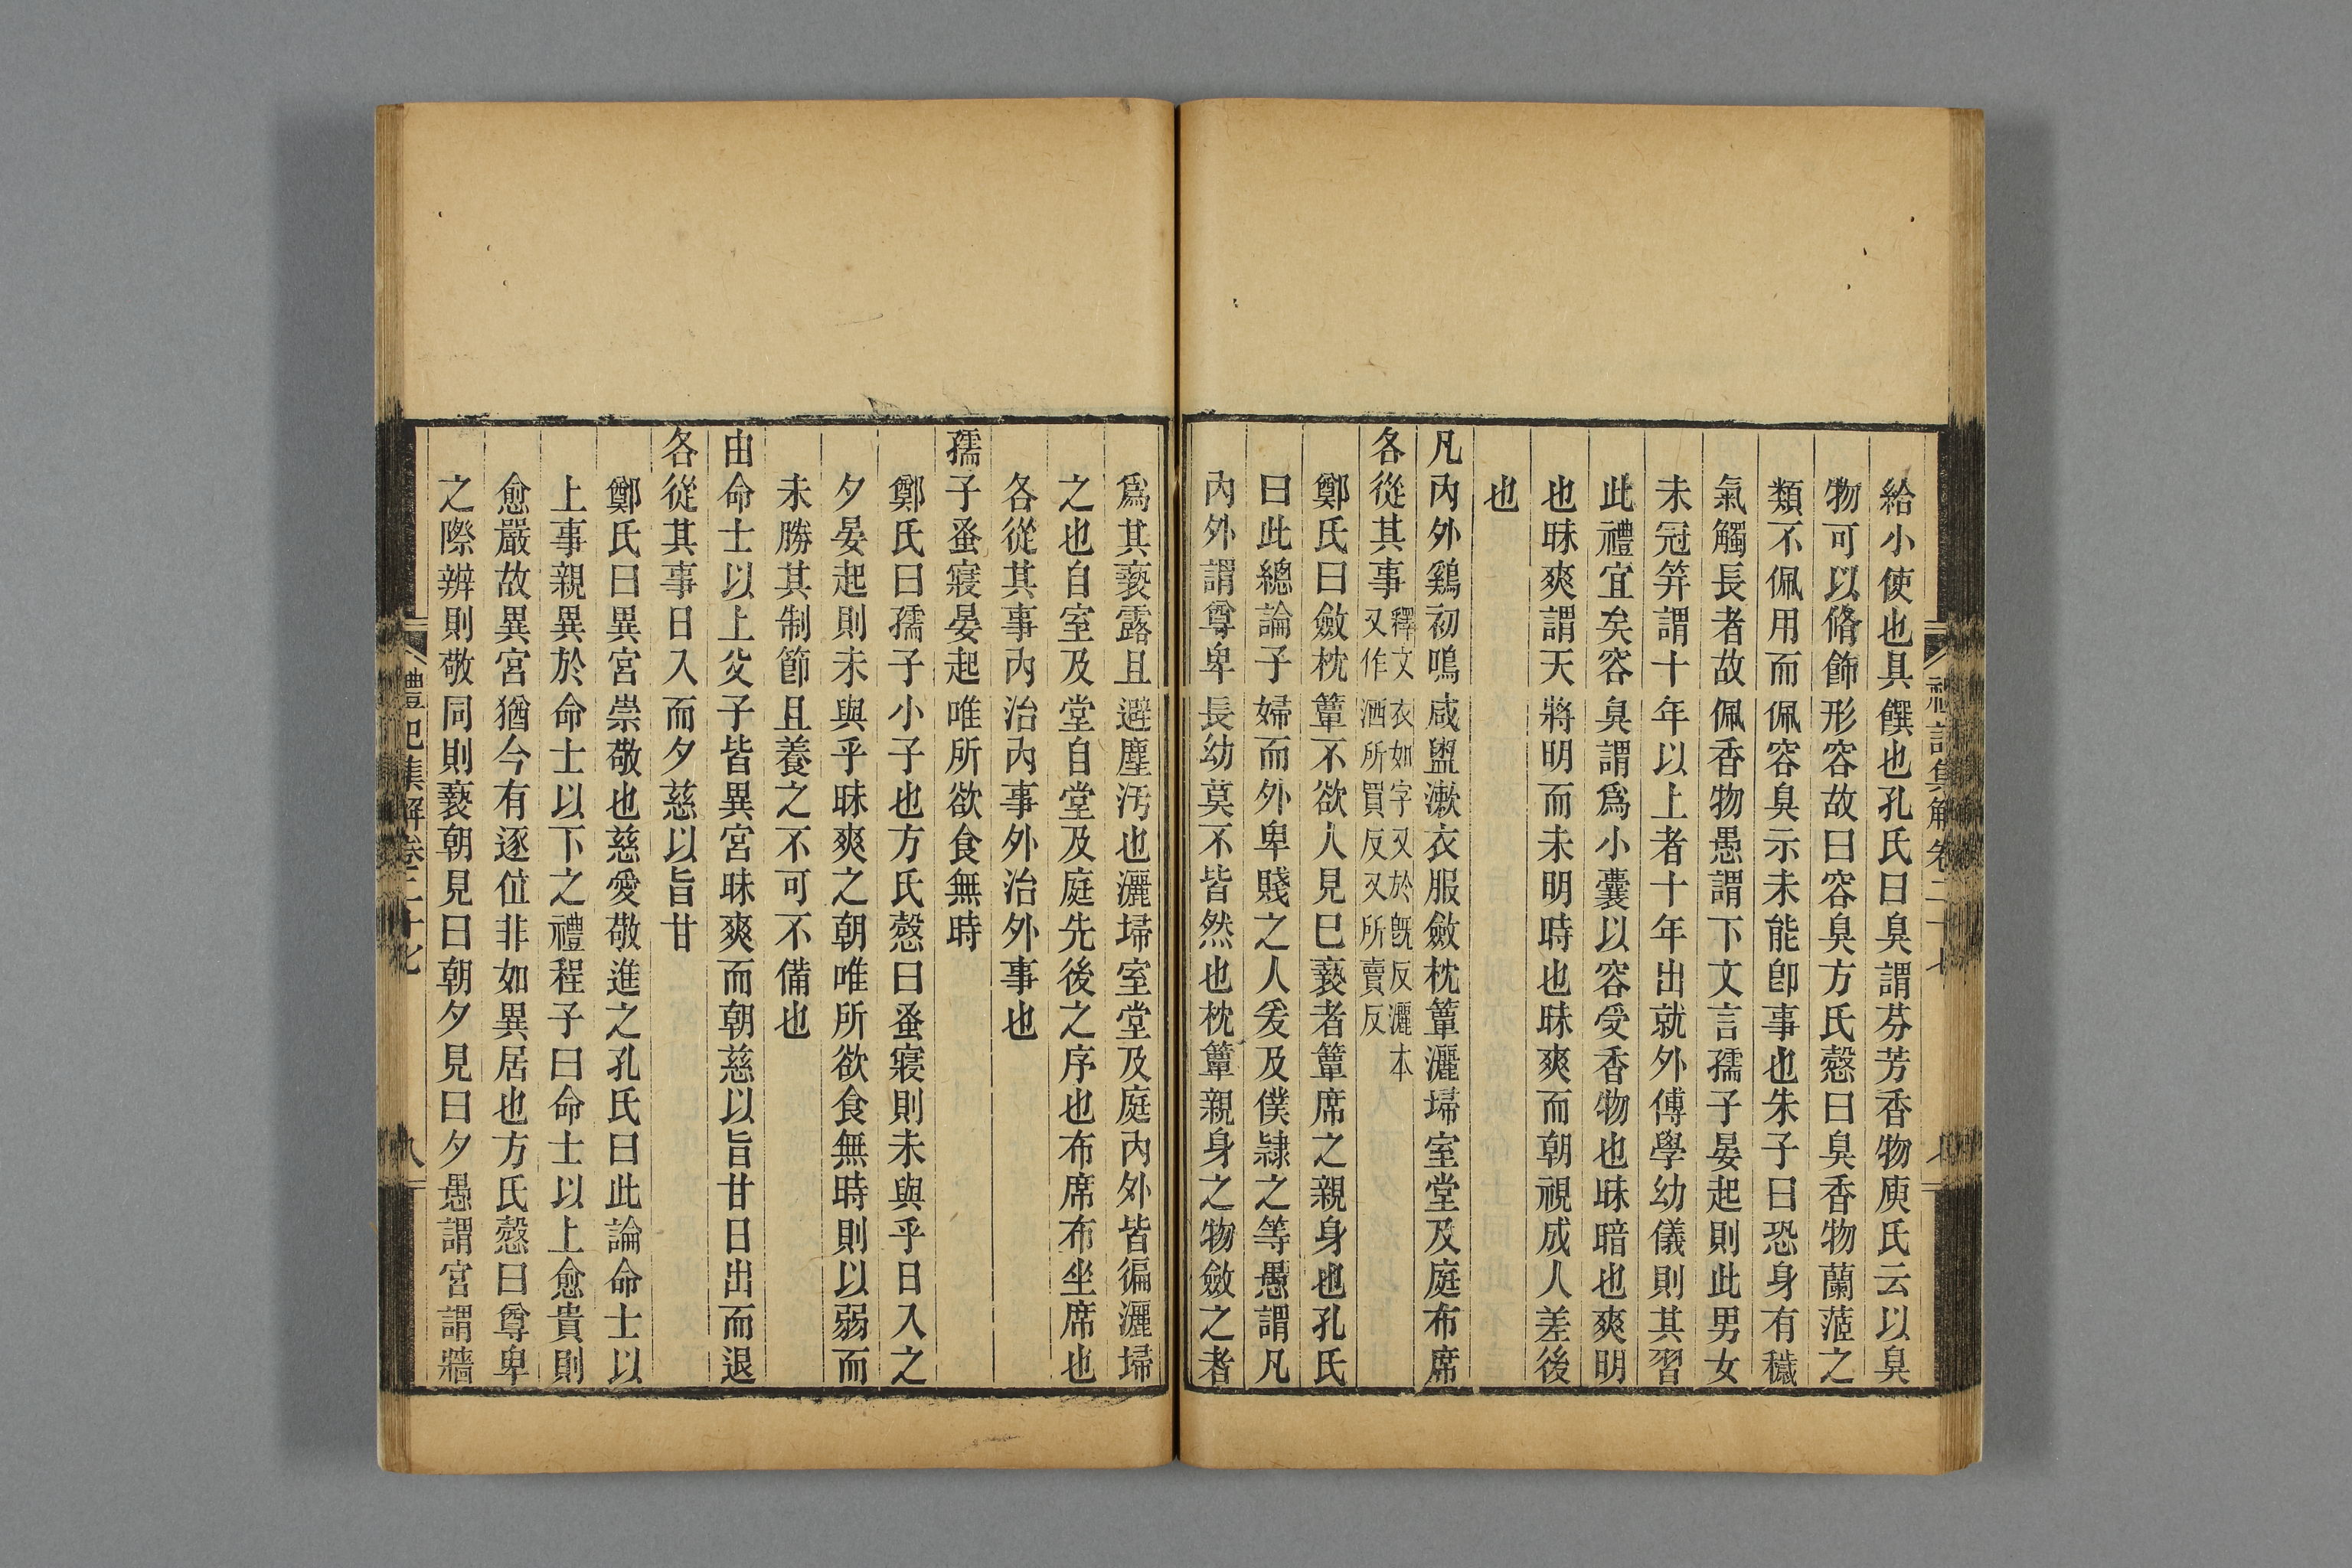 給小使也具饌也孔氏曰臭謂芬芳香物庾氏云以臭
物可以脩飾形容故曰容臭方氏慤曰臭香物蘭茝之
類不佩用而佩容臭示未能卽事也朱子曰恐身有穢
氣觸長者故佩香物愚謂下文言孺子晏起則此男女
未冠笄謂十年以上者十年出就外傅學幼儀則其習
此禮宜矣容臭謂爲小囊以容受香物也昧暗也爽明
也昧爽謂天將明而未明時也昧爽而朝視成人差後
也
凡內外雞初鳴咸盥漱衣服斂枕簟灑埽室堂及庭布席
各從其事釋文衣如字又於旣反灑本又作洒所買反又所賣反
鄭氏曰斂枕簟不欲人見已褻者簟席之親身也孔氏
曰此總論子婦而外卑賤之人爰及僕隷之等愚謂凡
內外謂尊卑長幼莫不皆然也枕簟親身之物斂之者
爲其褻露且避塵汚也灑埽室堂及庭內外皆徧灑埽
之也自室及堂自堂及庭先後之序也布席布坐席也
各從其事內治內事外治外事也
孺子蚤寢晏起唯所欲食無時
鄭氏曰孺子小子也方氏慤曰蚤寢則未與乎日入之
夕晏起則未與乎昧爽之朝唯所欲食無時則以弱而
未勝其制節且養之不可不備也
由命士以上父子皆異宮昧爽而朝慈以旨甘日出而退
各從其事日入而夕慈以旨甘
鄭氏曰異宮崇敬也慈愛敬進之孔氏曰此論命士以
上事親異於命士以下之禮程子曰命士以上愈貴則
愈嚴故異宮猶今有逐位非如異居也方氏慤曰尊卑
之際辨則敬同則褻朝見曰朝夕見曰夕愚謂宮謂牆
禮記集解卷二十七
八